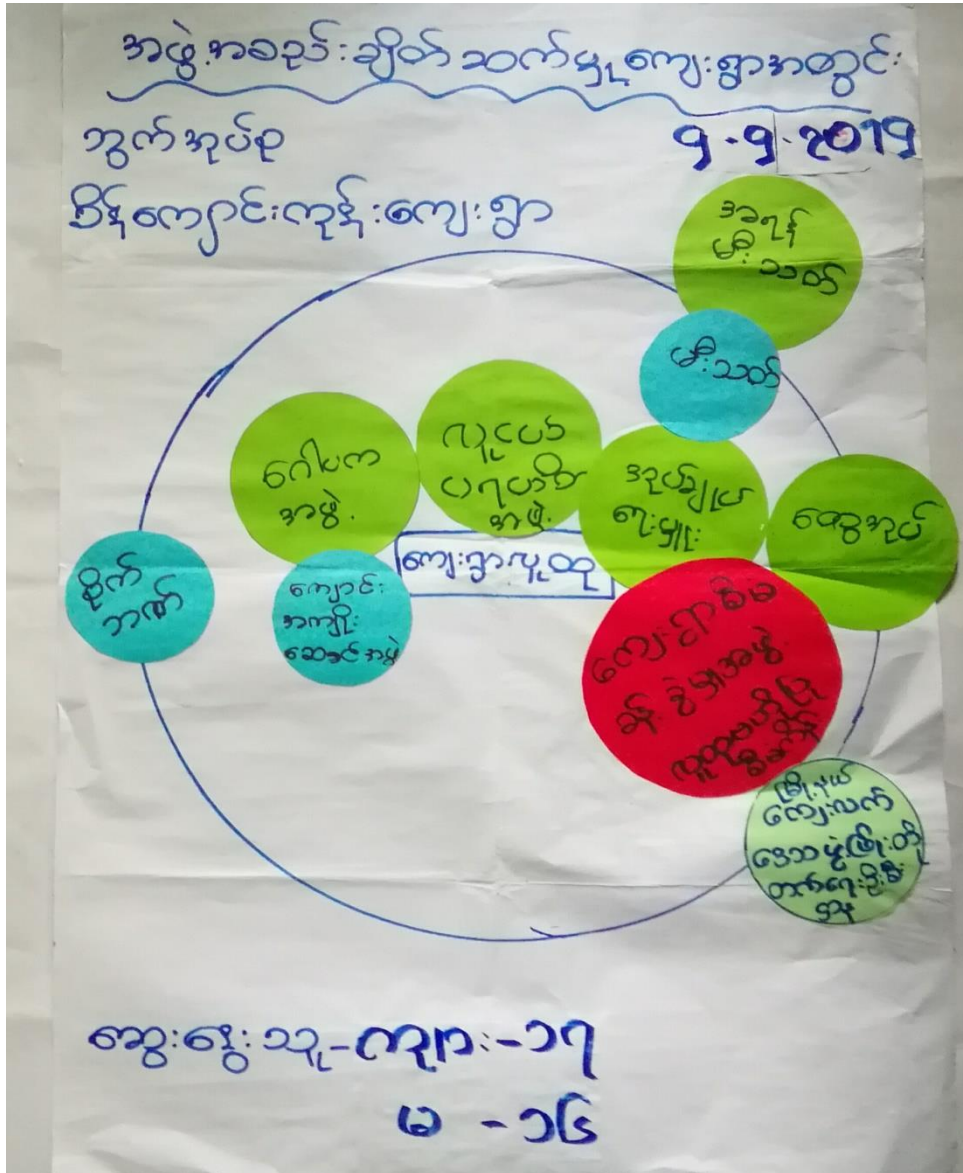 အဖွဲ့အစည်းချိတ်ဆက်မှုကျေးရွာအတွင်း
ဘွက်အုပ်စု
9-9-2019
စိန်ကျောင်းကုန်းကျေးရွာ
အရန်
မီးသတ်
မီးသတ်
ဂေါပက
အဖွဲ့
လူငယ်
ပရဟိတ
အဖွဲ့
အုပ်ချုပ်
ရေးမှူး
ထွေအုပ်
ကျေးရွာလူထု
စိုက်
ဘဏ်
ကျောင်း
အကျိုး
ဆောင်အဖွဲ့
ကျေးရွာစီမံ
ခန့်ခွဲမှုအဖွဲ့
လူထုဗဟိုပြု
စီမံကိန်း
မြို့နယ်
ကျေးလက်
ဒေသဖွံ့ဖြိုးတိုး
တက်ရေးဦးစီး
ဌာန
ဆွေးနွေးသူ-ကျား-၁၇
မ - ၁၆